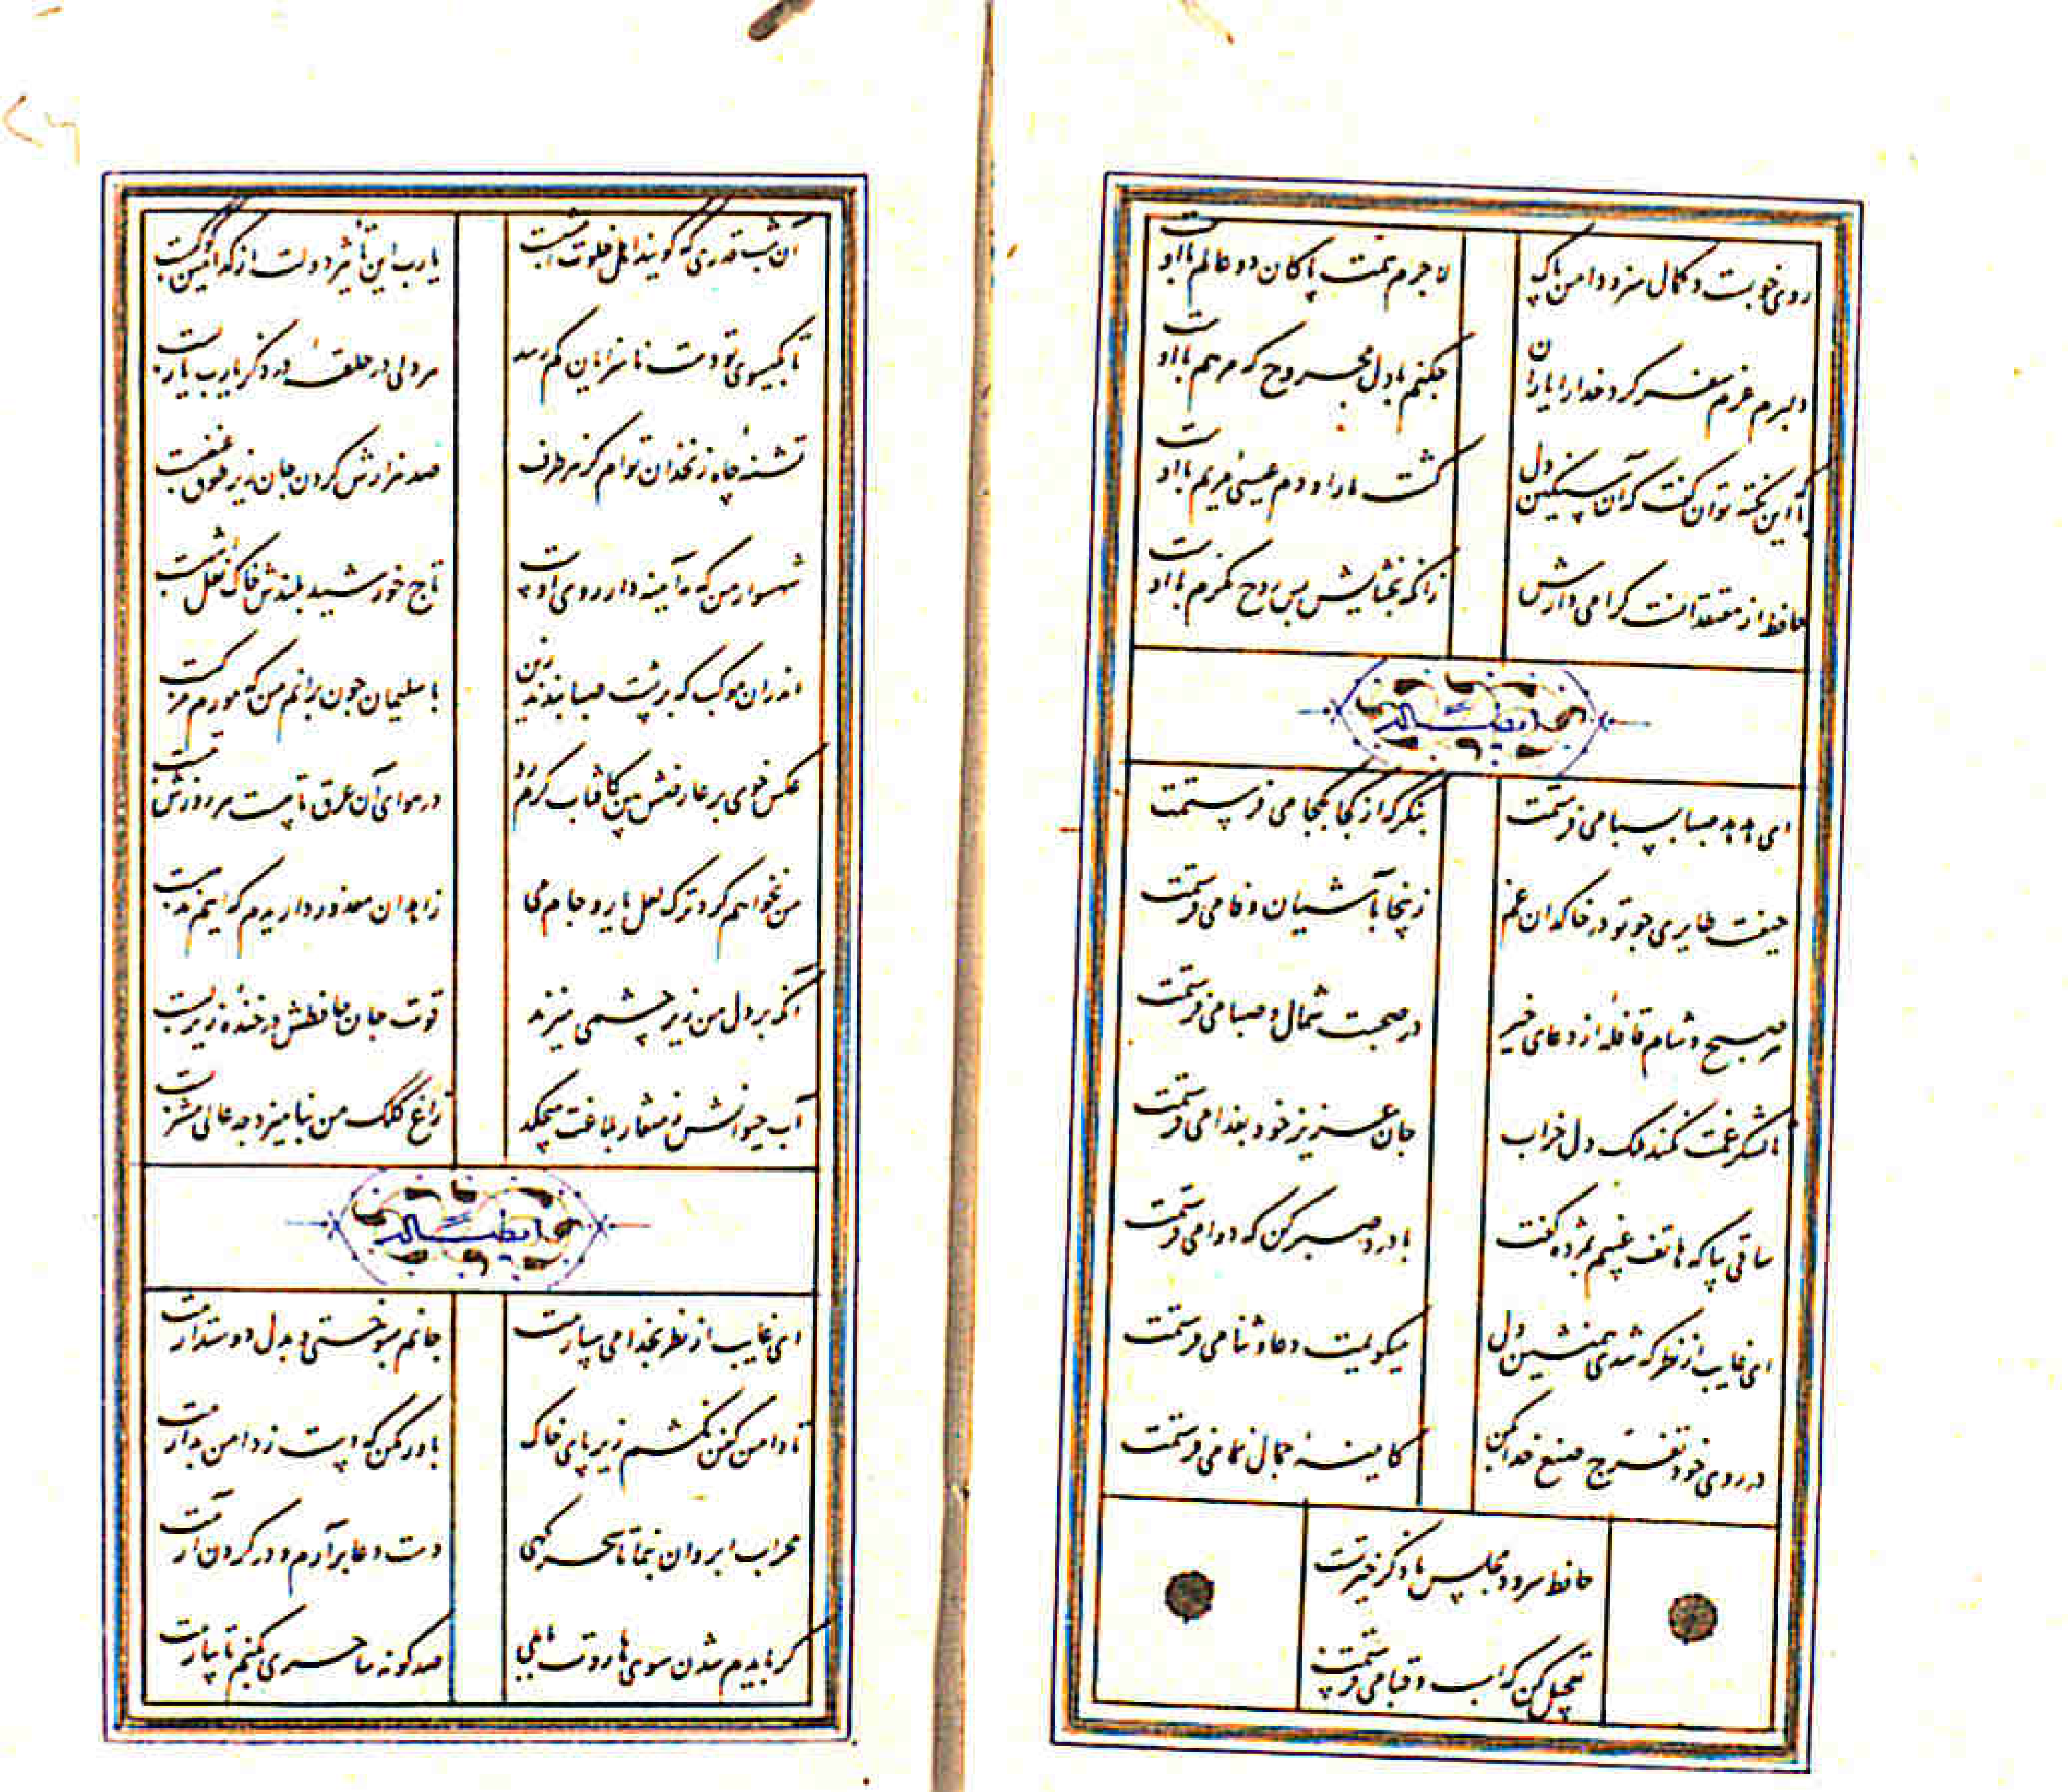 روی خوبست و کمال هنر و دامن پاک
لاجرم همت پاکان دو عالم با اوست
دلبرم عزم سفر کرد خدا را یاران
چکنم با دل مجروح که مرهم با اوست
با که این نکته توان گفت که آن سنگین دل
کشت ما را و دم عیسی مریم با اوست
حافظ از معتقدانست گرامی دارش
زانکه بخشایش بس روح مکرم با اوست
ای هدهد صبا بسبا می فرستمت
بنگر که از کجا بکجا می فرستمت
حیفست طایری چو تو در خاکدان غم
زینجا بآشیان وفا می فرستمت
هر صبح و شام قافلهٔ از دعای خیر
در صحبت شمال و صبا می فرستمت
تا لشکر غمت نکند ملک دل خراب
جان عزیز خود بفدا می فرستمت
ساقی بیا که هاتف غیبم بمژده گفت
با درد صبر کن که دوا می فرستمت
ای غایب از نظر که شدی همنشین دل
میگویمت دعا و ثنا می فرستمت
در روی خود تفرج صنع خدا کن
کاینهٔ جمال نما می فرستمت
حافظ سرود مجلس ما ذکر خیر تست
تعجیل کن که اسب و قبا می فرستمت
۲۶
آن شب قدری که گویند اهل خلوت امشبست
یارب این تأثیر دولت از کدامین کوکبست
تا بگیسوی تو دست ناسزایان کم رسد
هر دلی در حلقهٔ در ذکر یارب یاربست
تشنهٔ چاه زنخدان توام کز هر طرف
صد هزارش گردن جان زیر طوق غبغبست
شهسوار من که مه آینه دار روی اوست
تاج خورشید بلندش خاک نعل مرکبست
اندران موکب که بر پشت صبا بندند زین
با سلیمان چون برانم من که مورم مرکبست
عکس خوی بر عارضش بین کافتاب گرم رو
در هوای آن عرق تا هست هر روزش تبست
من نخواهم کرد ترک لعل یار و جام می
زاهدان معذور داریدم که اینم مذهبست
آنکه بر دل من زیر چشمی میزند
قوت جان حافظش در خندهٔ زیر لبست
آب حیوانش ز منقار بلاغت میچکد
زاغ کلک من عالی مشربست
ای غایب از نظر بخدا می سپارمت
جانم بسوختی و بدل دوستدارمت
تا دامن کفن نکشم زیر پای خاک
باور مکن که دست ز دامن بدارمت
محراب ابروان بنما تا سحرگهی
دست دعا برآرم و در گردن آرمت
گر بایدم شدن سوی هاروت بابلی
صد گونه ساحری بکنم تا بیارمت